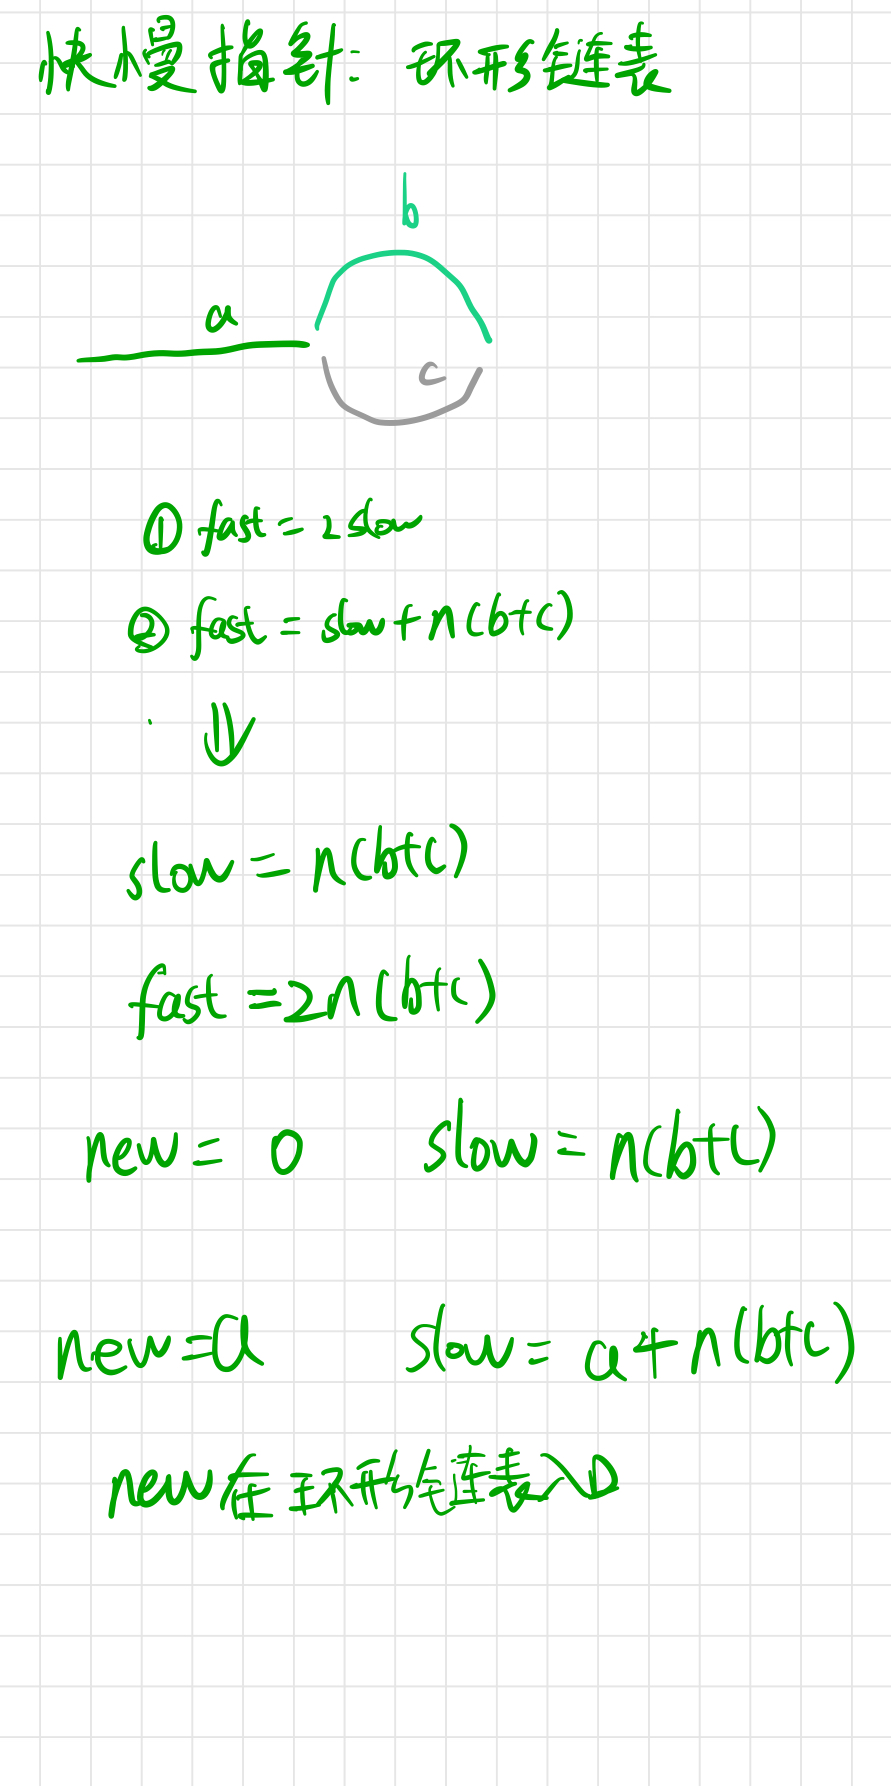 快慢指针: 环形链表
b
a
c
① fast = 2 slow
② fast = slow + n(b+c)
⇓
slow = n(b+c)
fast = 2n(b+c)
new = 0 slow = n(b+c)
new = a slow = a + n(b+c)
new在环形链表入口